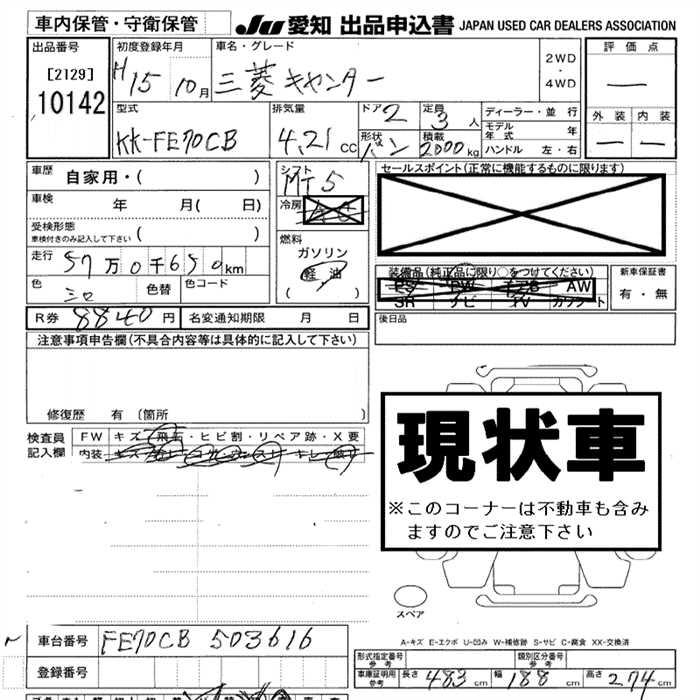 車内保管・守衛保管
JU 愛知 出品申込書 JAPAN USED CAR DEALERS ASSOCIATION
出品番号 初度登録年月 車名・グレード 評価点
[2129] H15 10月 三菱キャンター 2WD・4WD
10142
型式 排気量 ドア 2 定員 3人 ディーラー・並行 外装 内装
モデル年式 年
KK-FE70CB 4.21cc 形状 バン 積載 2000kg ハンドル 左・右
車歴 自家用・( ) シフト MT5 セールスポイント(正常に機能するものに限ります)
車検 年 月( 日) 冷房
受検形態 車検付きのみ記入して下さい ( ) 燃料 ガソリン
走行 57万0千650km 軽油 装備品(純正品に限り○をつけてください) 新車保証書
色 シロ 色替 色コード ( ) PS PW AW 有・無
SR ナビ TV
R券 8840円 名変通知期限 月 日 後日品
注意事項申告欄(不具合内容等は具体的に記入して下さい)
修復歴 有 〔箇所 〕
検査員記入欄 FW キズ・飛石・ヒビ割・リペア跡・X要
内装
現状車
※このコーナーは不動車も含み
ますのでご注意下さい
スペア
A-キズ E-エクボ U-凹み W-補修跡 S-サビ C-腐食 XX-交換済
車台番号 FE70CB 503616
形式指定番号 参考 類別区分番号 参考
登録番号 車庫証明用 参考 長さ 483cm 幅 188cm 高さ 274cm